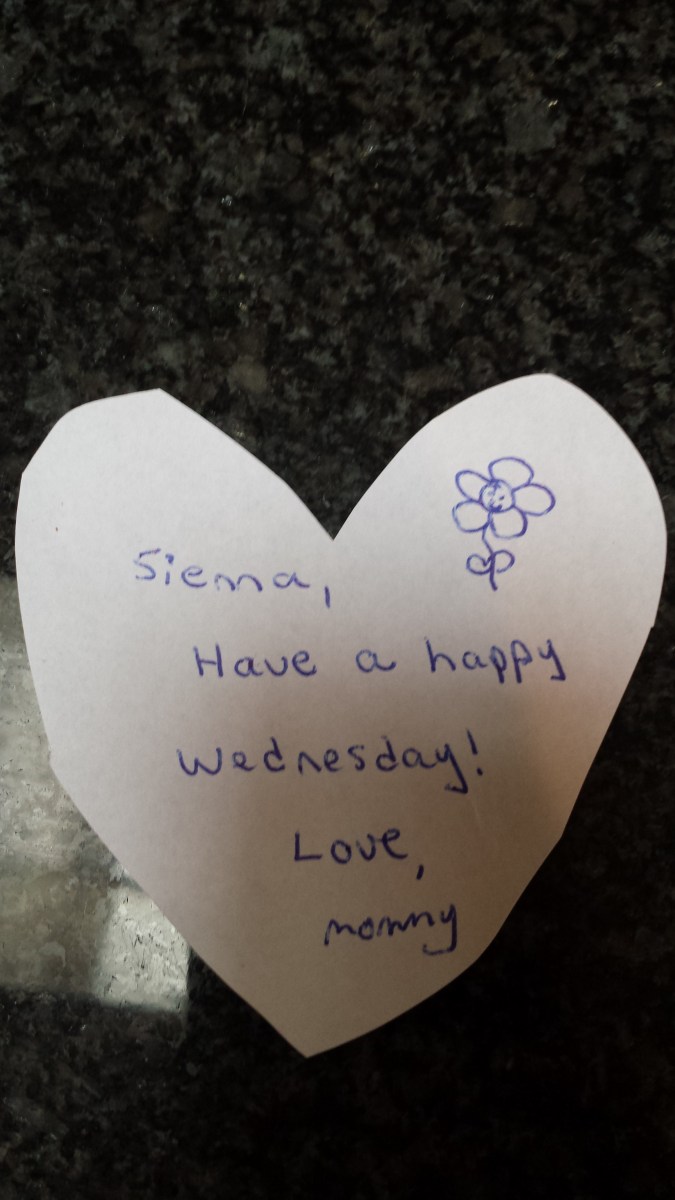 Sienna,
Have a happy
Wednesday!
Love,
mommy